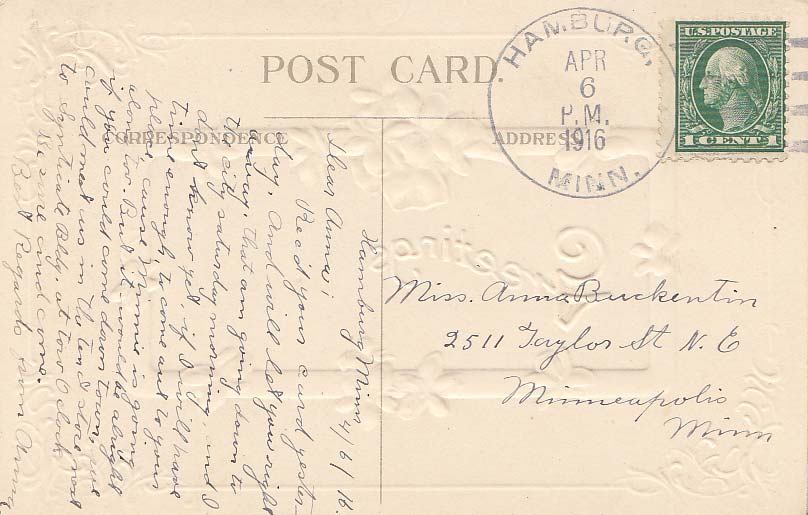 POST CARD.
CORRESPONDENCE
ADDRESS
HAMBURG,
APR
6
P.M.
1916
MINN.
U.S. POSTAGE
1 CENT 1
Greetings
Miss. Anna Buckentin
2511 Taylor St N. E
Minneapolis
Minn
Hamburg Minn 4/6/16.
Dear Anna;
Rec'd your card yester-
day, And will let you right
away, that am going down to
the city saturday morning, and I
don't know yet, if I will have
time enough, to come out to your
place, cause Minnie is going
along too. But it would be alright
if you could come down town, we
could meet us in the Ten ct store next
to Syndicate Bldg. at tow O clock
Be sure and come.
Best Regards from